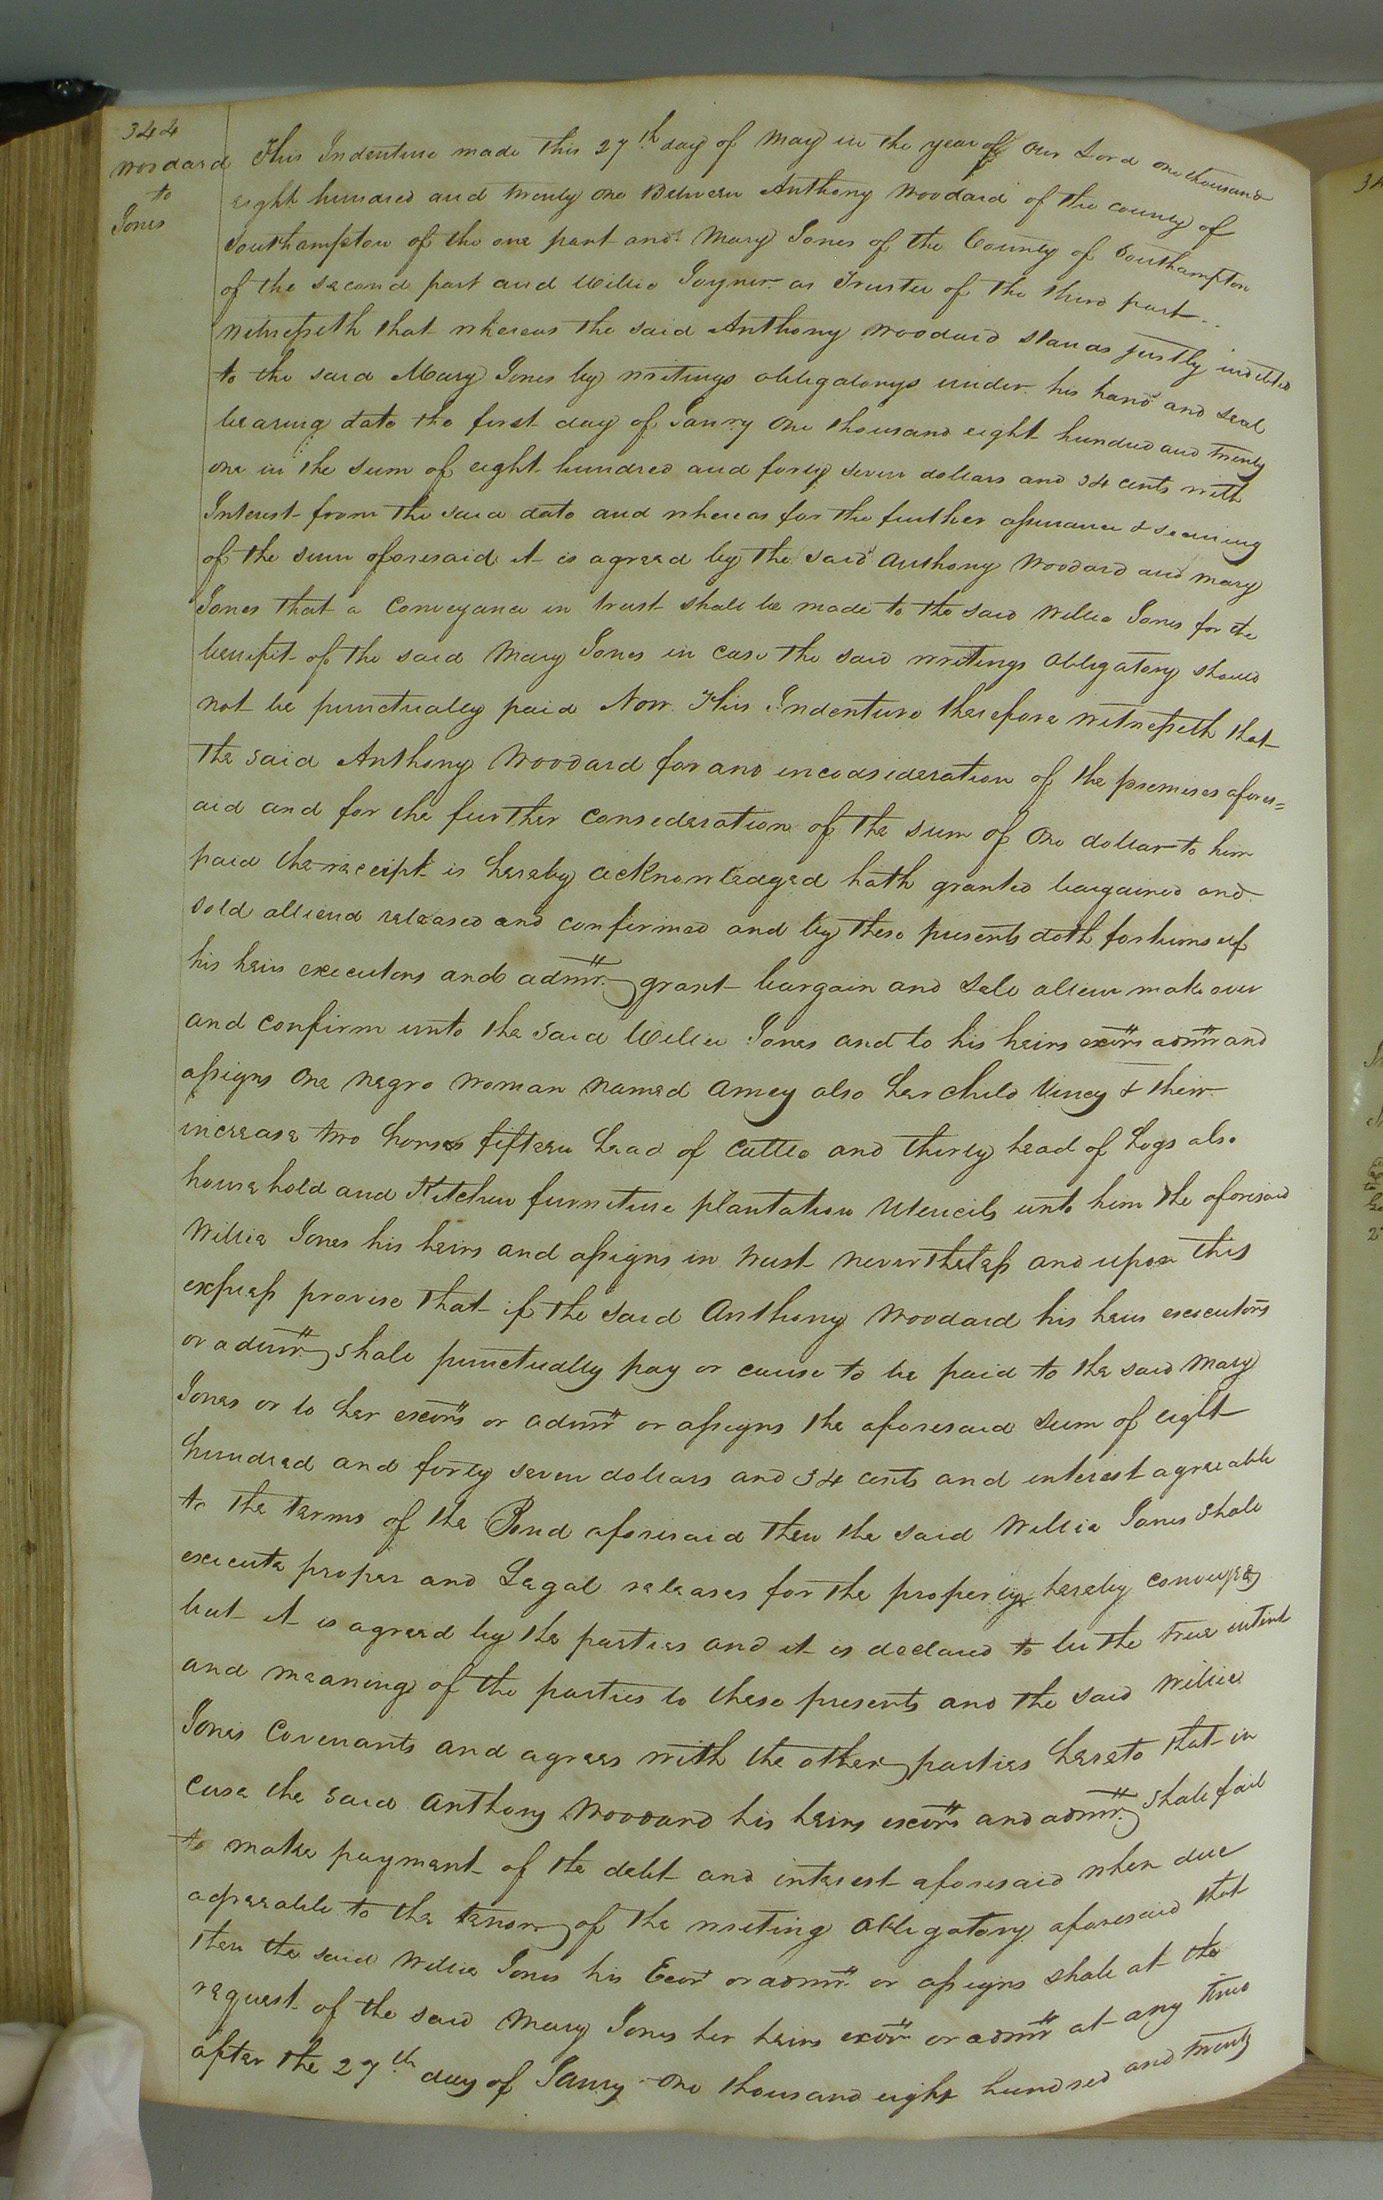 344
Woodard
to
Jones
This Indenture made this 27th day of May in the year of our Lord one thousand
eight hundred and twenty one Between Anthony Woodard of the county of
Southampton of the one part and Mary Jones of the County of Southampton
of the second part and Willie Joyner as Trustee of the third part
Witnesseth that whereas the said Anthony Woodard stands justly indebted
to the said Mary Jones by writings obligatorys under his hand and seal
bearing date the first day of Janry one thousand eight hundred and twenty
one in the sum of eight hundred and forty seven dollars and 34 cents with
Interest from the said date and whereas for the further assurance & securing
of the sum aforesaid it is agreed by the said Anthony Woodard and Mary
Jones that a Conveyance in trust shall be made to the said Willie Jones for the
benefit of the said Mary Jones in case the said writings obligatory should
not be punctually paid Now This Indenture therefore witnesseth that
the said Anthony Woodard for and in consideration of the premises afores=
aid and for the further consideration of the sum of one dollar to him
paid the receipt is hereby acknowledged hath granted bargained and
sold aliend released and confirmed and by these presents doth for himself
his heirs executors and admrs grant bargain and sale alien make over
and confirm unto the said Willie Jones and to his heirs exors admrs and
assigns one negro woman named Amey also her child Viney & their
increase two horses fifteen head of cattle and thirty head of hogs also
household and Kitchen furniture plantation Utencils unto him the aforesaid
Willie Jones his heirs and assigns in trust nevertheless and upon this
express provise that if the said Anthony Woodard his heirs executors
or admrs shall punctually pay or cause to be paid to the said Mary
Jones or to her exors or admrs or assigns the aforesaid sum of eight
hundred and forty seven dollars and 34 cents and interest agreeable
to the terms of the Bond aforesaid then the said Willie Jones shall
execute proper and Legal releases for the property hereby conveyed
but it is agreed by the parties and it is declared to be the true intent
and meaning of the parties to these presents and the said Willie
Jones Covenants and agrees with the other parties hereto that in
case the said Anthony Woodard his heirs exors and admrs shall fail
to make payment of the debt and interest aforesaid when due
agreeable to the tenor of the writing obligatory aforesaid that
then the said Willie Jones his Exor or admrs or assigns shall at the
request of the said Mary Jones her heirs exors or admrs at any time
after the 27th day of Janry one thousand eight hundred and twenty